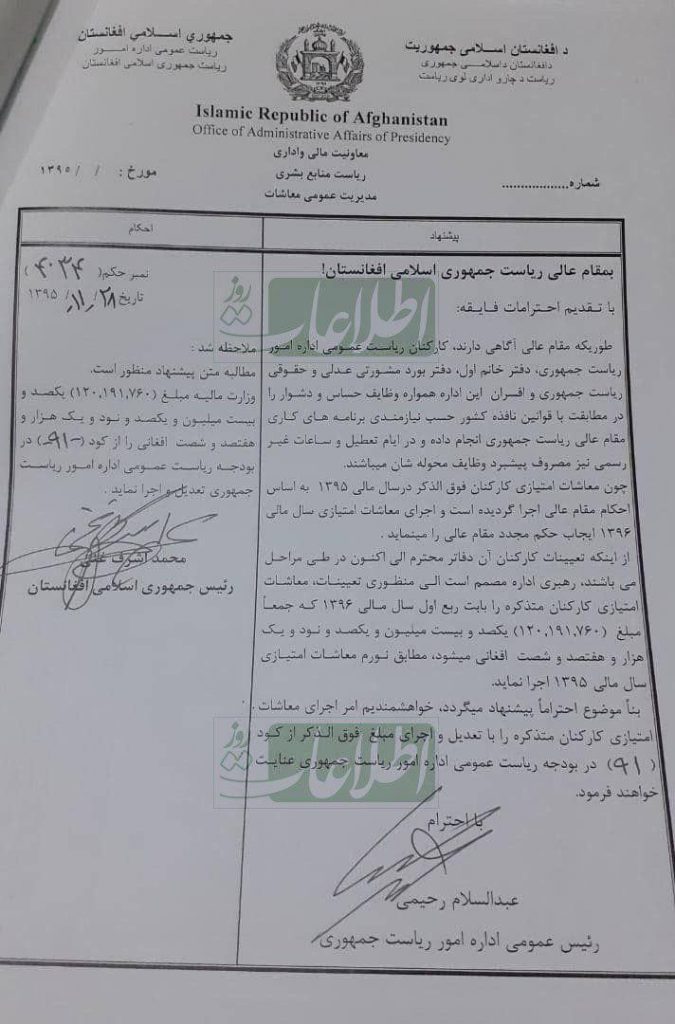 د افغانستان اسلامی جمهوریت
دافغانستان داسلامــی جمهوری
ریاست د چارو اداری لوی ریاست
جمهوری اســلامی افغانستان
ریاست عمومی اداره امـور
ریاست جمهوری اسلامی افغانستان
Islamic Republic of Afghanistan
Office of Administrative Affairs of Presidency
معاونیت مالی واداری
ریاست منابع بشری
مدیریت عمومی معاشات
شماره..................
مورخ : / / ۱۳۹۵
پیشنهاد
بمقام عالی ریاست جمهوری اسلامی افغانستان!
با تقدیم احترامات فـایقه:
طوریکه مقام عالی آگاهی دارند، کارکنان ریاست عمومی اداره امور
ریاست جمهوری، دفتر خانم اول، دفتر بورد مشورتی عدلی و حقوقی
ریاست جمهوری و افسران این اداره همواره وظایف حساس و دشوار را
در مطابقت با قوانین نافذه کشور حسب نیازمندی برنامه های کاری
مقام عالی ریاست جمهوری انجام داده و در ایام تعطیل و ساعات غیر
رسمی نیز مصروف پیشبرد وظایف محوله شان میباشند.
چون معاشات امتیازی کارکنان فوق الذکر درسال مالی ۱۳۹۵ به اساس
احکام مقام عالی اجرا گردیده است و اجرای معاشات امتیازی سال مالی
۱۳۹۶ ایجاب حکم مجدد مقام عالی را مینماید .
از اینکه تعیینات کارکنان آن دفاتر محترم الی اکنون در طی مراحل
می باشند، رهبری اداره مصمم است الی منظوری تعیینات، معاشات
امتیازی کارکنان متذکره را بابت ربع اول سال مـالی ۱۳۹۶ کـه جمعاً
مبلغ (۱۲۰,۱۹۱,۷۶۰) یکصد و بیست میلیون و یکصد و نود و یک
هزار و هفتصد و شصت افغانی میشود، مطابق نورم معاشات امتیازی
سال مالی ۱۳۹۵ اجرا نماید.
بنأ موضوع احتراماً پیشنهاد میگردد، خواهشمندیم امر اجرای معاشات
امتیازی کارکنان متذکره را با تعدیل و اجرای مبلغ فوق الـذکر از کود
(۹۱) در بودجه ریاست عمومی اداره امور ریاست جمهوری عنایت
خواهند فرمود.
با احترام
عبدالسلام رحیمی
رئیس عمومی اداره امور ریاست جمهوری
احکام
نمبر حکم( ۴۰۳۴ )
تاریخ ۲۸/ ۱۱/ ۱۳۹۵
ملاحظه شد :
مطالبه متن پیشنهاد منظور است.
وزارت مالیه مبلغ (۱۲۰,۱۹۱,۷۶۰) یکصد و
بیست میلیون و یکصد و نود و یک هزار و
هفتصد و شصت افغانی را از کود (-۹۱) در
بودجه ریاست عمومی اداره امور ریاست
جمهوری تعدیل و اجرا نماید .
محمد اشرف غنی
رئیس جمهوری اسلامی افغانستان
اطلاعات روز
اطلاعات روز